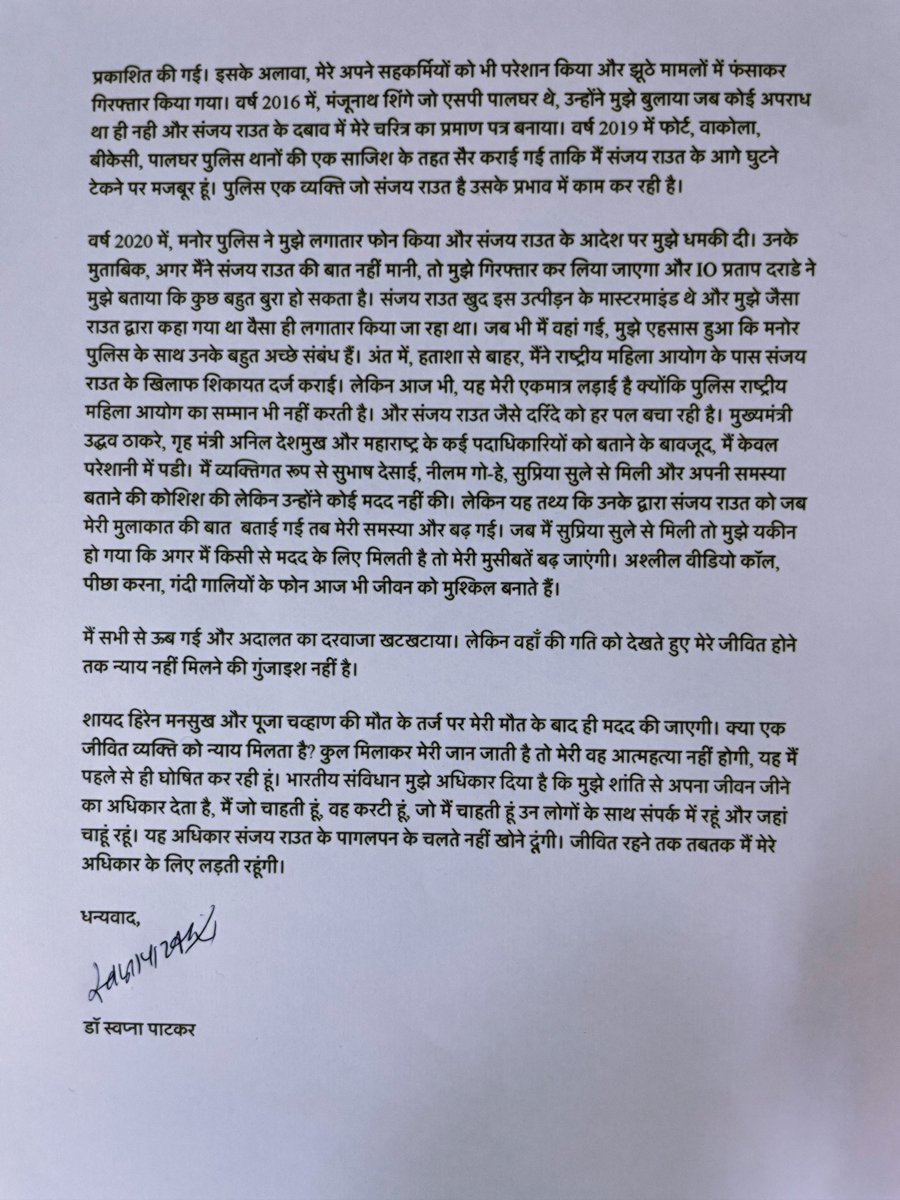 प्रकाशित की गई। इसके अलावा, मेरे अपने सहकर्मियों को भी परेशान किया और झूठे मामलों में फंसाकर
गिरफ्तार किया गया। वर्ष 2016 में, मंजूनाथ शिंगे जो एसपी पालघर थे, उन्होंने मुझे बुलाया जब कोई अपराध
था ही नही और संजय राउत के दबाव में मेरे चरित्र का प्रमाण पत्र बनाया। वर्ष 2019 में फोर्ट, वाकोला,
बीकेसी, पालघर पुलिस थानों की एक साजिश के तहत सैर कराई गई ताकि मैं संजय राउत के आगे घुटने
टेकने पर मजबूर हूं। पुलिस एक व्यक्ति जो संजय राउत है उसके प्रभाव में काम कर रही है।
वर्ष 2020 में, मनोर पुलिस ने मुझे लगातार फोन किया और संजय राउत के आदेश पर मुझे धमकी दी। उनके
मुताबिक, अगर मैंने संजय राउत की बात नहीं मानी, तो मुझे गिरफ्तार कर लिया जाएगा और IO प्रताप दराडे ने
मुझे बताया कि कुछ बहुत बुरा हो सकता है। संजय राउत खुद इस उत्पीड़न के मास्टरमाइंड थे और मुझे जैसा
राउत द्वारा कहा गया था वैसा ही लगातार किया जा रहा था। जब भी मैं वहां गई, मुझे एहसास हुआ कि मनोर
पुलिस के साथ उनके बहुत अच्छे संबंध हैं। अंत में, हताशा से बाहर, मैंने राष्ट्रीय महिला आयोग के पास संजय
राउत के खिलाफ शिकायत दर्ज कराई। लेकिन आज भी, यह मेरी एकमात्र लड़ाई है क्योंकि पुलिस राष्ट्रीय
महिला आयोग का सम्मान भी नहीं करती है। और संजय राउत जैसे दरिंदे को हर पल बचा रही है। मुख्यमंत्री
उद्धव ठाकरे, गृह मंत्री अनिल देशमुख और महाराष्ट्र के कई पदाधिकारियों को बताने के बावजूद, मैं केवल
परेशानी में पडी। मैं व्यक्तिगत रूप से सुभाष देसाई, नीलम गो-हे, सुप्रिया सुले से मिली और अपनी समस्या
बताने की कोशिश की लेकिन उन्होंने कोई मदद नहीं की। लेकिन यह तथ्य कि उनके द्वारा संजय राउत को जब
मेरी मुलाकात की बात बताई गई तब मेरी समस्या और बढ़ गई। जब मैं सुप्रिया सुले से मिली तो मुझे यकीन
हो गया कि अगर मैं किसी से मदद के लिए मिलती है तो मेरी मुसीबतें बढ़ जाएंगी। अश्लील वीडियो कॉल,
पीछा करना, गंदी गालियों के फोन आज भी जीवन को मुश्किल बनाते हैं।
मैं सभी से ऊब गई और अदालत का दरवाजा खटखटाया। लेकिन वहाँ की गति को देखते हुए मेरे जीवित होने
तक न्याय नहीं मिलने की गुंजाइश नहीं है।
शायद हिरेन मनसुख और पूजा चव्हाण की मौत के तर्ज पर मेरी मौत के बाद ही मदद की जाएगी। क्या एक
जीवित व्यक्ति को न्याय मिलता है? कुल मिलाकर मेरी जान जाती है तो मेरी वह आत्महत्या नहीं होगी, यह मैं
पहले से ही घोषित कर रही हूं। भारतीय संविधान मुझे अधिकार दिया है कि मुझे शांति से अपना जीवन जीने
का अधिकार देता है, मैं जो चाहती हूं, वह करटी हूं, जो मैं चाहती हूं उन लोगों के साथ संपर्क में रहूं और जहां
चाहूं रहूं। यह अधिकार संजय राउत के पागलपन के चलते नहीं खोने दूंगी। जीवित रहने तक तबतक मैं मेरे
अधिकार के लिए लड़ती रहूंगी।
धन्यवाद,
डॉ स्वप्ना पाटकर